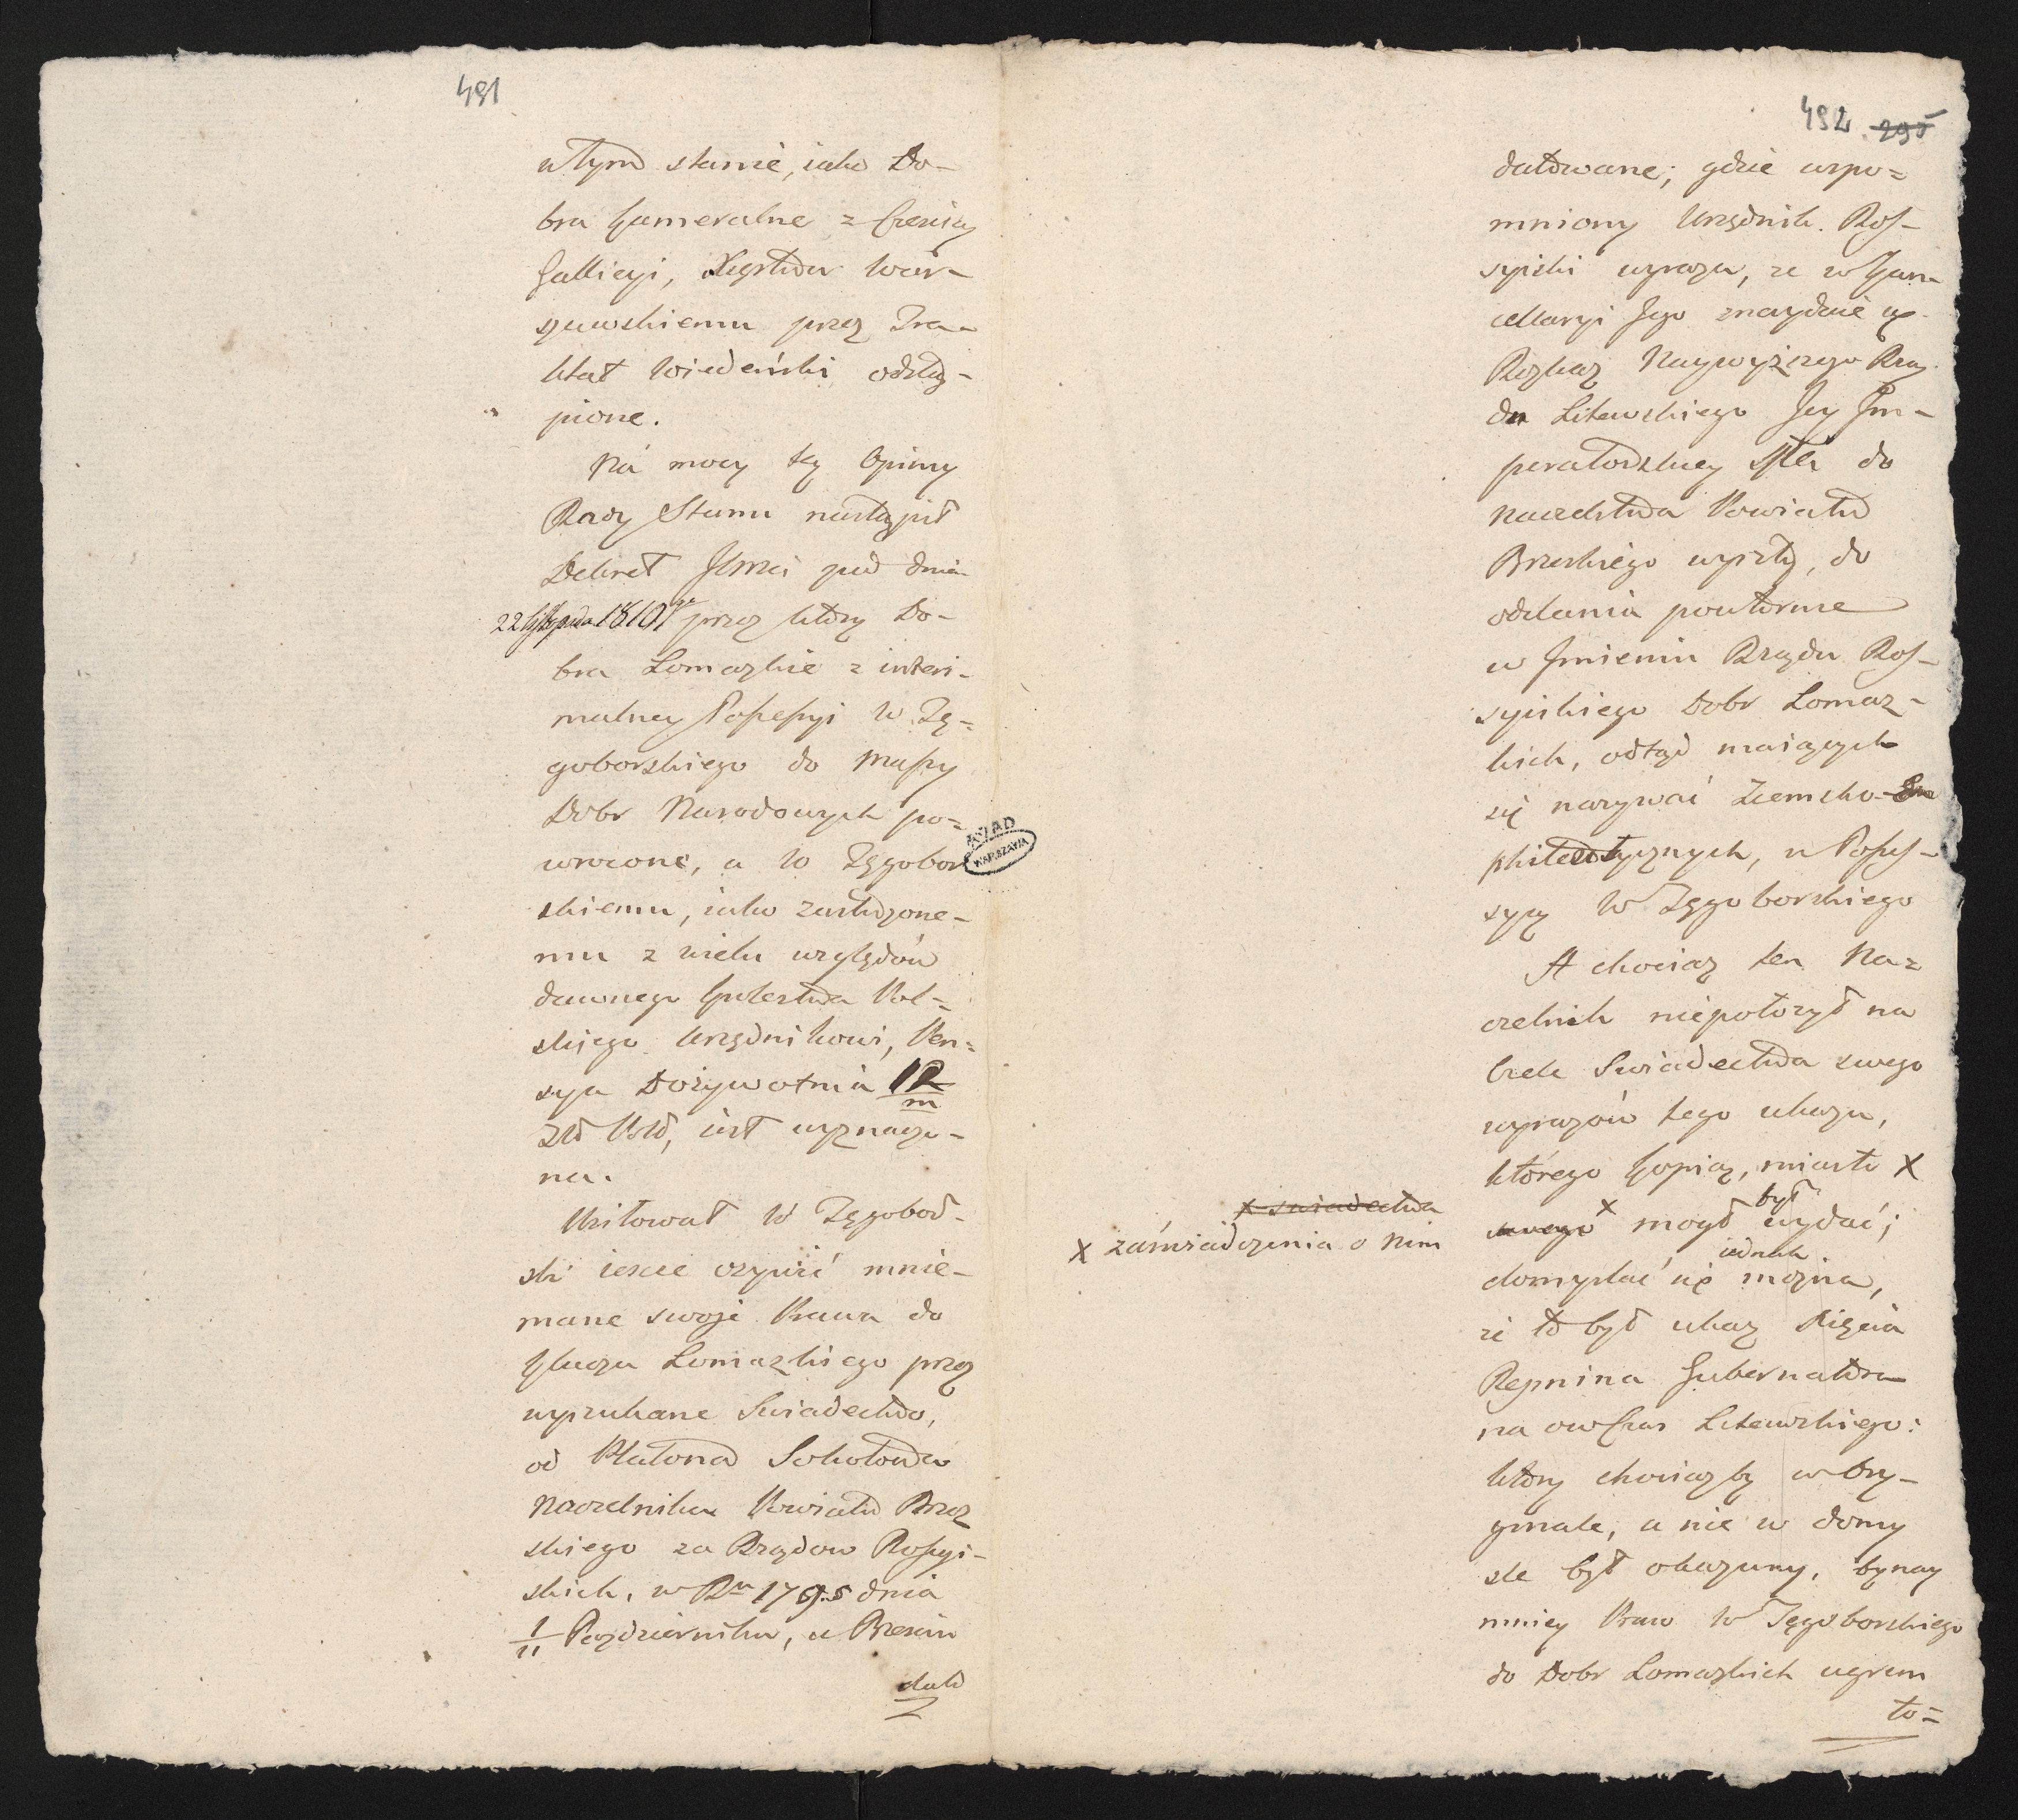 491
w tym stanie, iako Do-
bra Kameralne z Częścią
Gallicyi, Xięstwu War-
szawskiemu przez Tra-
ktat Wiedeński odstą-
pione.
Na mocy tey Opinii
Rady Stanu nastąpił
Dekret JKMci pod dniem
22 Listopada 1810 przez który Do-
bra Łomazkie z interi-
malney Possessyi W. Tę-
goborskiego do Massy
Dobr Narodowych po-
wrocone, a W Tęgobor
skiemu, iako zasłużone-
mu z wielu względów
dawnego Krolestwa Pol-
skiego Urzędnikowi, Pen-
sya Dożywotnia 12/m
Zł Pol, iest wyznaczo-
na.
Usiłował W Tęgobor-
ski ieszcze ożywić mnie-
mane swoje Prawa do
Klucza Łomazkiego przez
wyszukane Swiadectwo,
od Platona Sokołowa
Naczelnika Powiatu Brzes
skiego za Rządow Rossyi-
skich, w Rku 1795 dnia
1/11 Pazdziernika, w Brześciu
dato
AGAD
WARSZAWA
492 295
datowane; gdzie wspo-
mniony Urzędnik Ros-
syiski wyraża, że w Kan-
cellaryi Jego znayduie się
Rozkaz Naywyższego Rzą-
du Litewskiego Jey Im-
peratorskiey Mci do
Naczelstwa Powiatu
Brzeskiego wyszły, do
oddania powtorne
w Imieniu Rządu Ros-
syiskiego Dobr Łomaz-
kich, odtąd maiących
się nazywać Ziemsko-Em
phiteutycznych, w Posses-
syą W Tęgoborskiego
A chociaz ten Na-
czelnik niepołożył na
Czele Swiadectwa swego
wyrazów tego ukazu,
którego Kopią, miasto X
X swiadectwa
swego X mogł był wydać;
X zaświadczenia o nim
domyslać się iednak można,
że to był ukaz Xięcia
Repnina Gubernatora
na ow Czas Litewskiego:
który chociażby w Ory-
ginale, a nie w domy
sle był okazany, bynay
mniey Praw W Tęgoborskiego
do Dobr Łomazkich ugrun
to=